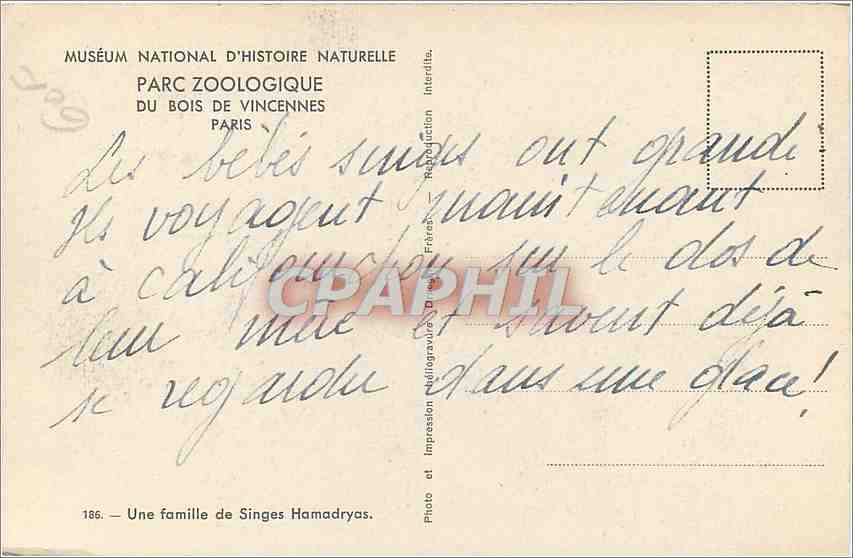 MUSÉUM NATIONAL D'HISTOIRE NATURELLE
PARC ZOOLOGIQUE
DU BOIS DE VINCENNES
PARIS
Les bébés singes ont grandi
Ils voyagent maintenant
à califourchon sur le dos de
leur mère et savent déjà
se regarder dans une glace!
CPAPHIL
186. — Une famille de Singes Hamadryas.
Photo et Impression Héliogravure Draeger Frères. — Reproduction Interdite.